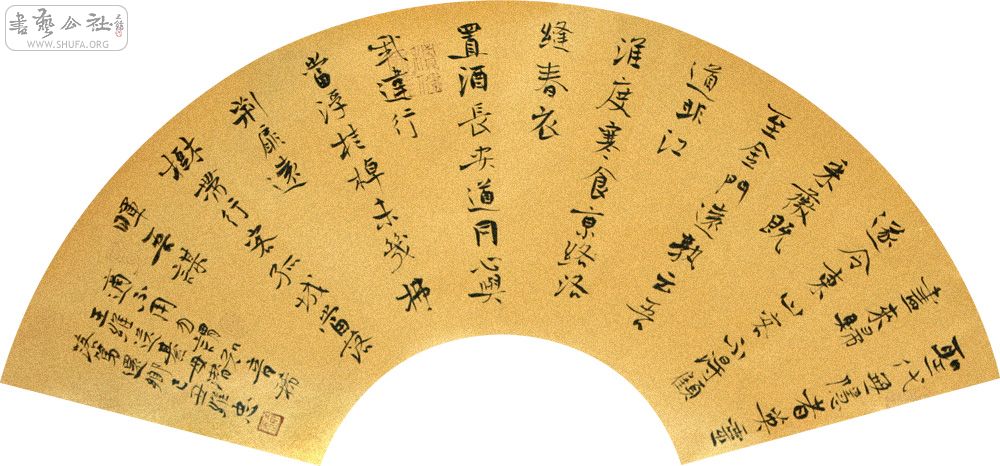 書藝公社
WWW.SHUFA.ORG
聖代無隱者英靈
盡來歸
遂令東山客不得顧
采薇既
至金門遠孰云吾
道非江
淮度寒食京洛
縫春衣
置酒長安道同心與
我違行
當浮桂棹未幾拂
荊扉遠
樹帶行客孤城當落
暉吾謀
適不用勿謂知音稀
王維送綦毋潛
落第還鄉 己丑雅忠